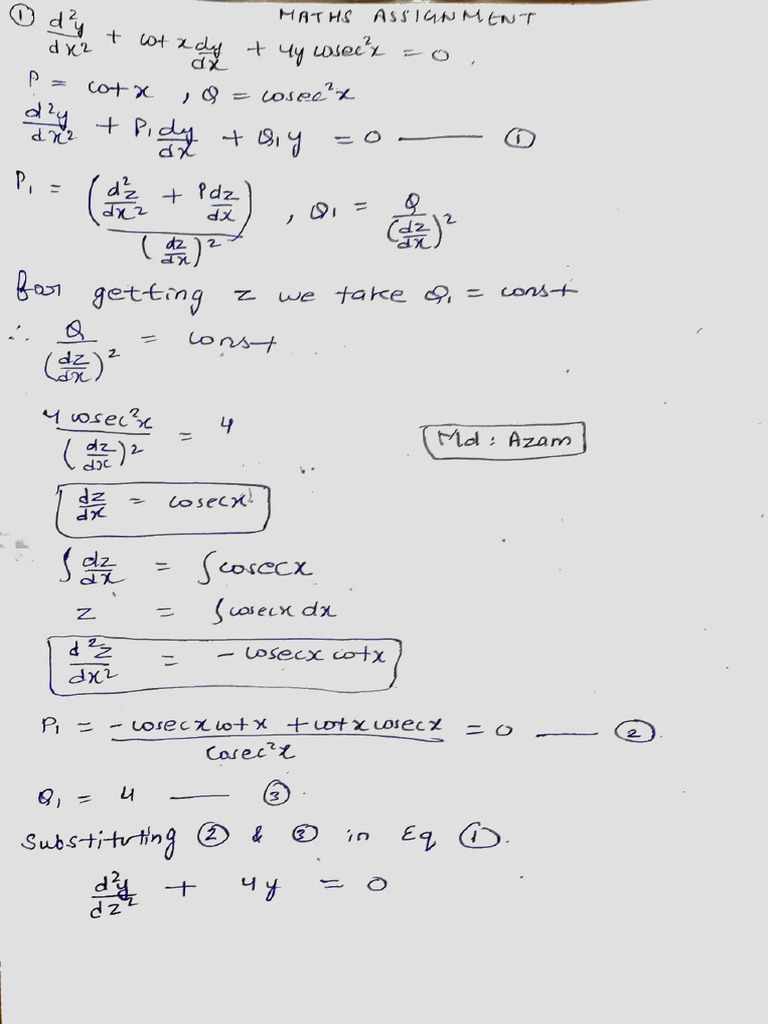 MATHS ASSIGNMENT
① d²y/dx² + cot x dy/dx + 4y cosec²x = 0.
P = cot x , Q = cosec²x
d²y/dx² + P₁ dy/dx + Q₁y = 0 —— ①
P₁ = (d²z/dx² + P dz/dx)/(dz/dx)² , Q₁ = Q/(dz/dx)²
for getting z we take Q₁ = const
∴ Q/(dz/dx)² = const
4 cosec²x/(dz/dx)² = 4
Md: Azam
dz/dx = cosecx
∫ dz/dx = ∫cosecx
z = ∫cosecx dx
d²z/dx² = - cosecx cotx
P₁ = - cosecx cotx + cotx cosecx/cosec²x = 0 —— ②.
Q₁ = 4 —— ③.
Substituting ② & ③ in Eq ①.
d²y/dz² + 4y = 0